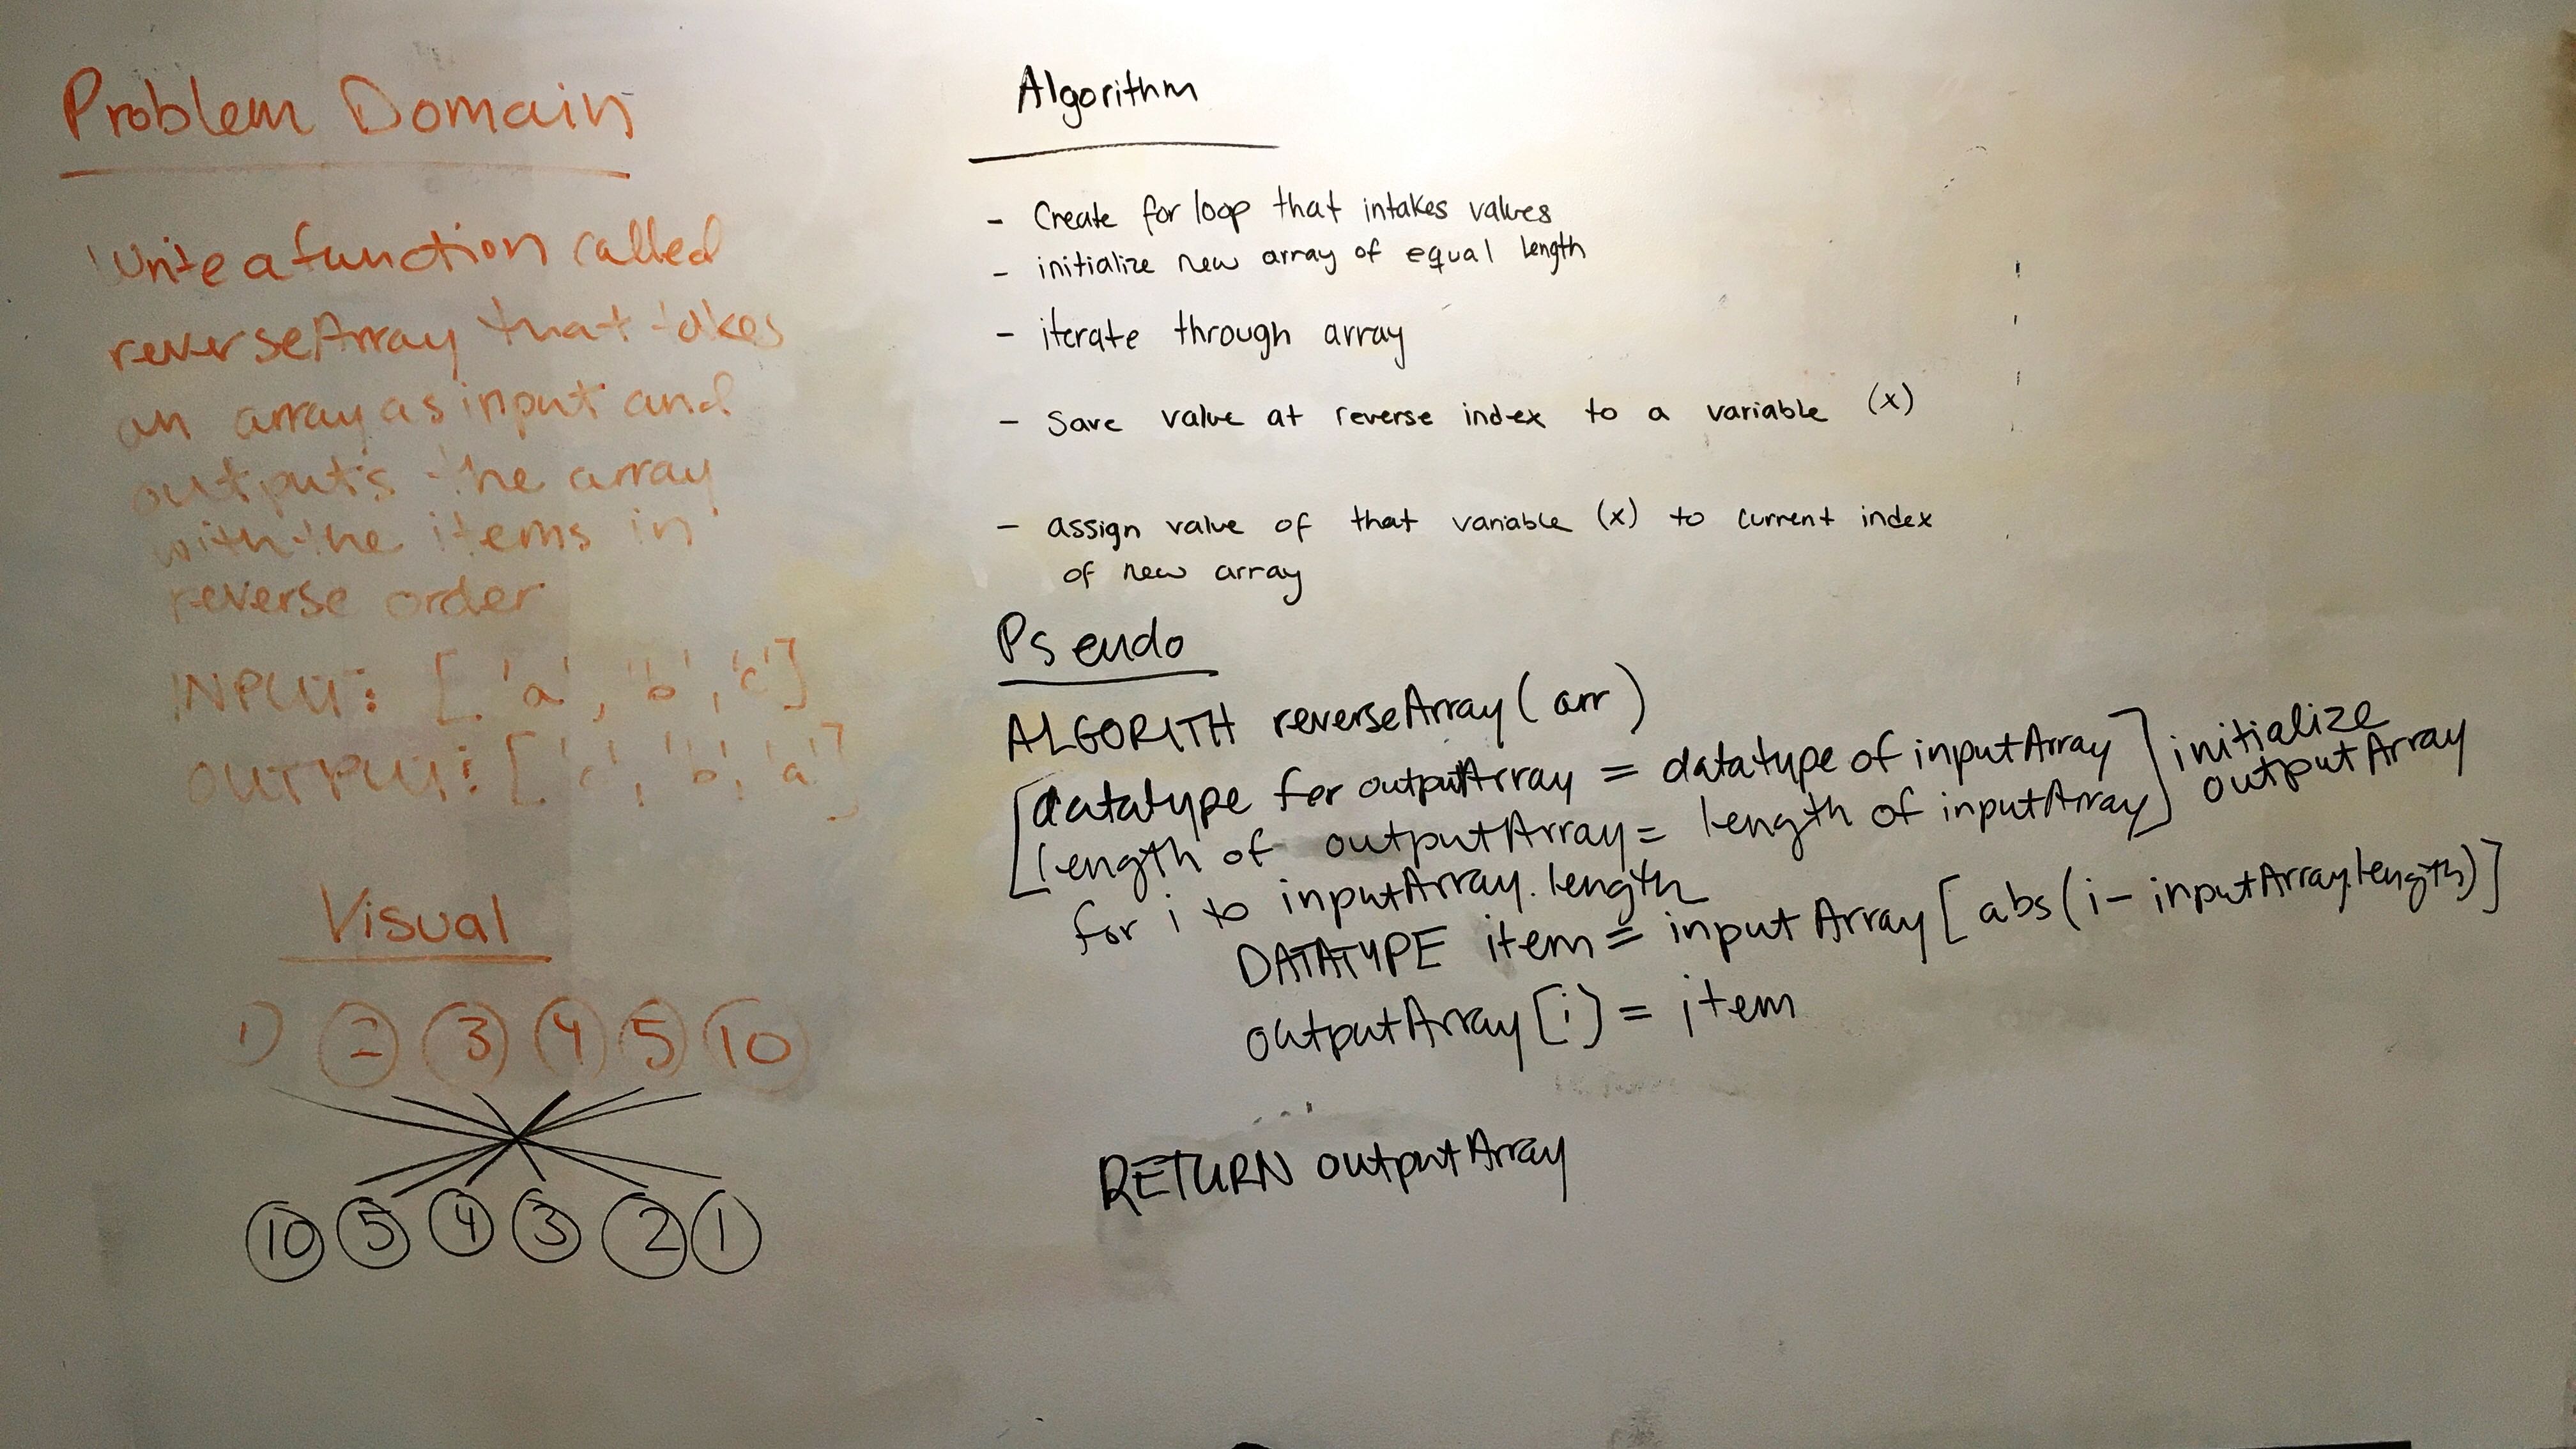 Problem Domain
Write a function called
reverseArray that takes
an array as input and
outputs the array
with the items in
reverse order
INPUT: ['a', 'b', 'c']
OUTPUT: ['c', 'b', 'a']
Visual
1 2 3 4 5 10
10 5 4 3 2 1
Algorithm
- Create for loop that intakes values
- initialize new array of equal length
- iterate through array
- Save value at reverse index to a variable (x)
- assign value of that variable (x) to current index
of new array
Pseudo
ALGORITH reverseArray(arr)
[datatype for outputArray = datatype of inputArray] initialize
length of outputArray = length of inputArray] outputArray
for i to inputArray.length
DATATYPE item = inputArray[abs(i - inputArray.length)]
outputArray[i] = item
RETURN outputArray